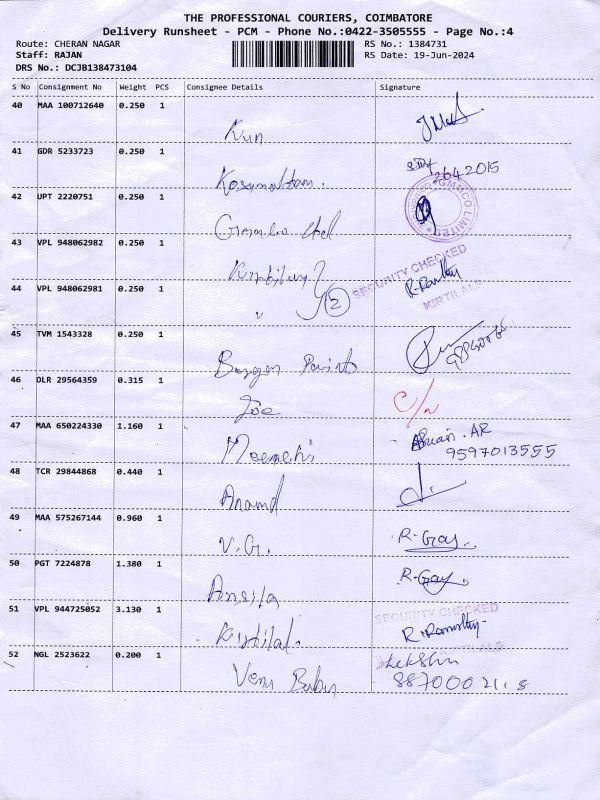 THE PROFESSIONAL COURIERS, COIMBATORE
Delivery Runsheet - PCM - Phone No.:0422-3505555 - Page No.:4
Route: CHERAN NAGAR RS No.: 1384731
Staff: RAJAN RS Date: 19-Jun-2024
DRS No.: DCJB138473104
S No Consignment No Weight PCS Consignee Details Signature
40 MAA 100712640 0.250 1
Kun
41 GDR 5233723 0.250 1
2642015
42 UPT 2220751 0.250 1
GMMCO LIMITED
Gmmco Ltd
43 VPL 948062982 0.250 1
SECURITY CHECKED
Kirtilal
R. Ramthy
44 VPL 948062981 0.250 1 KIRTILALS
" 2
45 TVM 1543328 0.250 1
Berger Paints
46 DLR 29564359 0.315 1
Joe C/n
47 MAA 650224330 1.160 1 AR
Meenachi 9597013555
48 TCR 29844868 0.440 1
Anand
49 MAA 575267144 0.960 1
V.G. R. Gay
50 PGT 7224878 1.380 1 R. Gay
51 VPL 944725052 3.130 1 SECURITY CHECKED
Kirtilal. R. Ramthy
52 NGL 2523622 0.200 1
Venu Babu